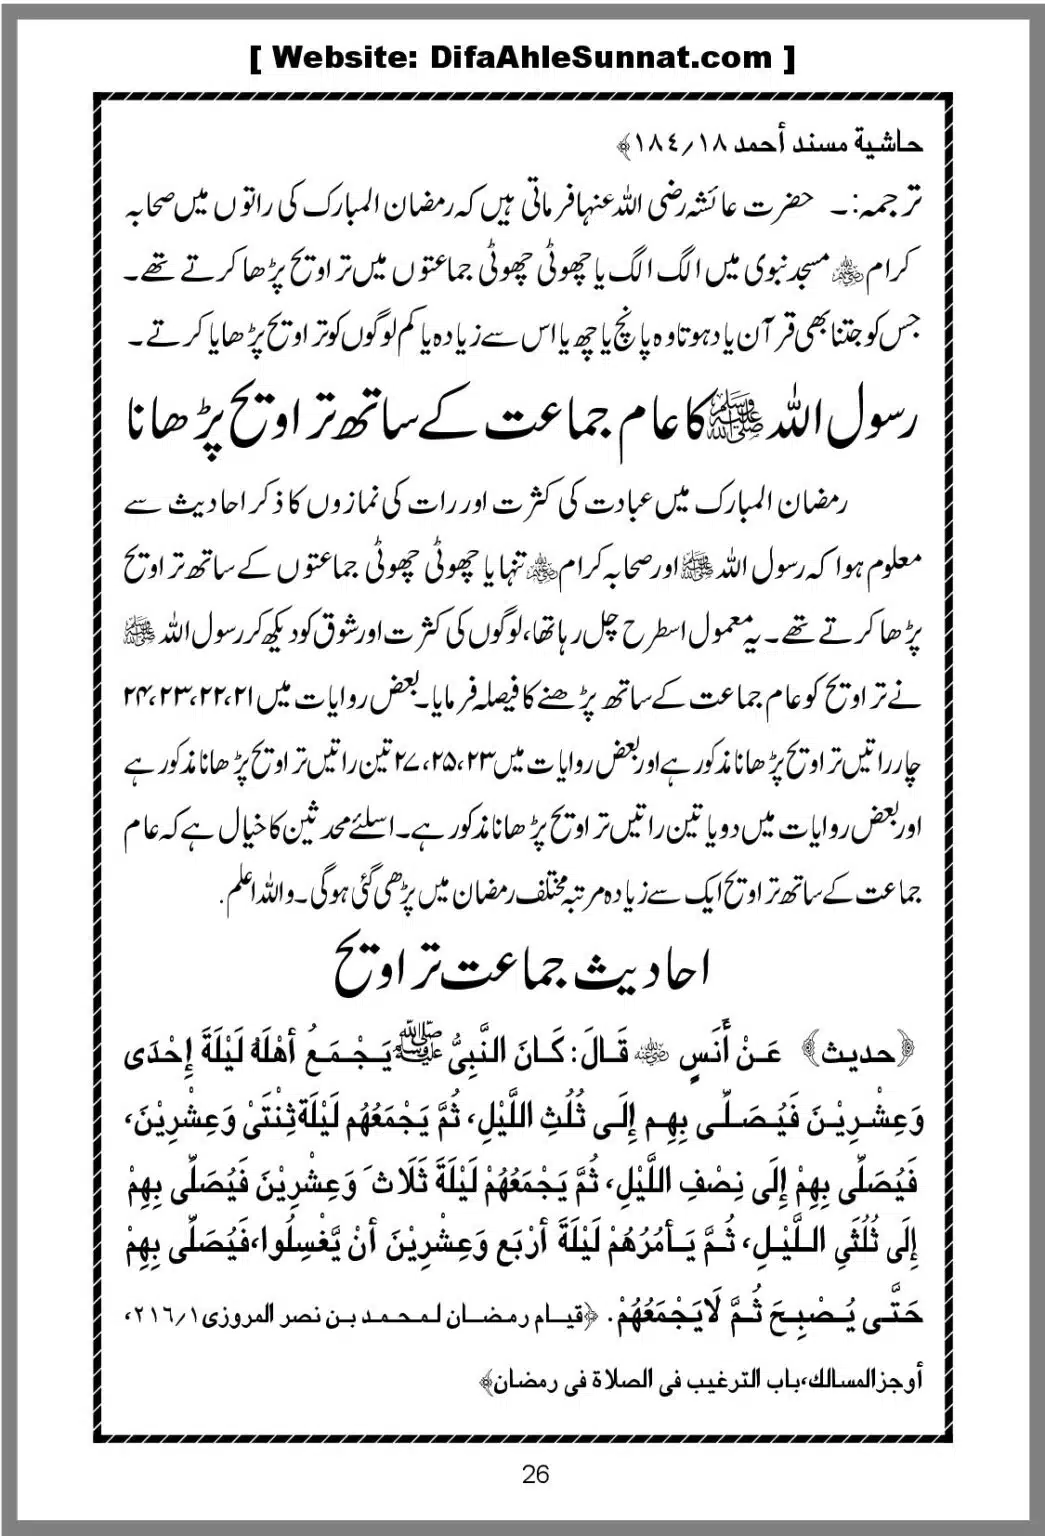 [ Website: DifaAhleSunnat.com ]
حاشية مسند أحمد ١٨/١٨٤﴾
ترجمہ:۔ حضرت عائشہ رضی اللہ عنہا فرماتی ہیں کہ رمضان المبارک کی راتوں میں صحابہ
کرام ؓ مسجد نبوی میں الگ الگ یا چھوٹی چھوٹی جماعتوں میں تراویح پڑھا کرتے تھے۔
جس کو جتنا بھی قرآن یاد ہوتا وہ پانچ یا چھ یا اس سے زیادہ یا کم لوگوں کو تراویح پڑھایا کرتے۔
رسول اللہ ﷺ کا عام جماعت کے ساتھ تراویح پڑھانا
رمضان المبارک میں عبادت کی کثرت اور رات کی نمازوں کا ذکر احادیث سے
معلوم ہوا کہ رسول اللہ ﷺ اور صحابہ کرام ؓ تنہا یا چھوٹی چھوٹی جماعتوں کے ساتھ تراویح
پڑھا کرتے تھے۔ یہ معمول اسطرح چل رہا تھا، لوگوں کی کثرت اور شوق کو دیکھ کر رسول اللہ ﷺ
نے تراویح کو عام جماعت کے ساتھ پڑھنے کا فیصلہ فرمایا۔ بعض روایات میں ۲۱، ۲۲، ۲۳، ۲۴
چار راتیں تراویح پڑھانا مذکور ہے اور بعض روایات میں ۲۳، ۲۵، ۲۷ تین راتیں تراویح پڑھانا مذکور ہے
اور بعض روایات میں دو یا تین راتیں تراویح پڑھانا مذکور ہے۔ اسلئے محدثین کا خیال ہے کہ عام
جماعت کے ساتھ تراویح ایک سے زیادہ مرتبہ مختلف رمضان میں پڑھی گئی ہوگی۔ واللہ اعلم.
احادیث جماعت تراویح
﴿حدیث﴾ عَنْ أَنَسٍ ؓ قَالَ: كَانَ النَّبِیُّ ﷺ يَجْمَعُ أهْلَهٗ لَيْلَةَ إِحْدَى
وَعِشْرِيْنَ فَيُصَلِّى بِهِم إِلَى ثُلُثِ اللَّيْلِ، ثُمَّ يَجْمَعُهُم لَيْلَةَ ثِنْتَىْ وَعِشْرِيْنَ،
فَيُصَلِّى بِهِمْ إِلَى نِصْفِ اللَّيْلِ، ثُمَّ يَجْمَعُهُمْ لَيْلَةَ ثَلَاثَ وَعِشْرِيْنَ فَيُصَلِّى بِهِمْ
إِلَى ثُلُثَىِ اللَّيْلِ، ثُمَّ يَأمُرُهُمْ لَيْلَةَ أرْبَع وَعِشْرِيْنَ أنْ يَّغْسِلُوا، فَيُصَلِّى بِهِمْ
حَتَّى يُصْبِحَ ثُمَّ لَايَجْمَعُهُمْ. ﴿قيام رمضان لمحمد بن نصر المروزى ١/٢١٦،
أوجز المسالك، باب الترغيب فى الصلاة فى رمضان﴾
26